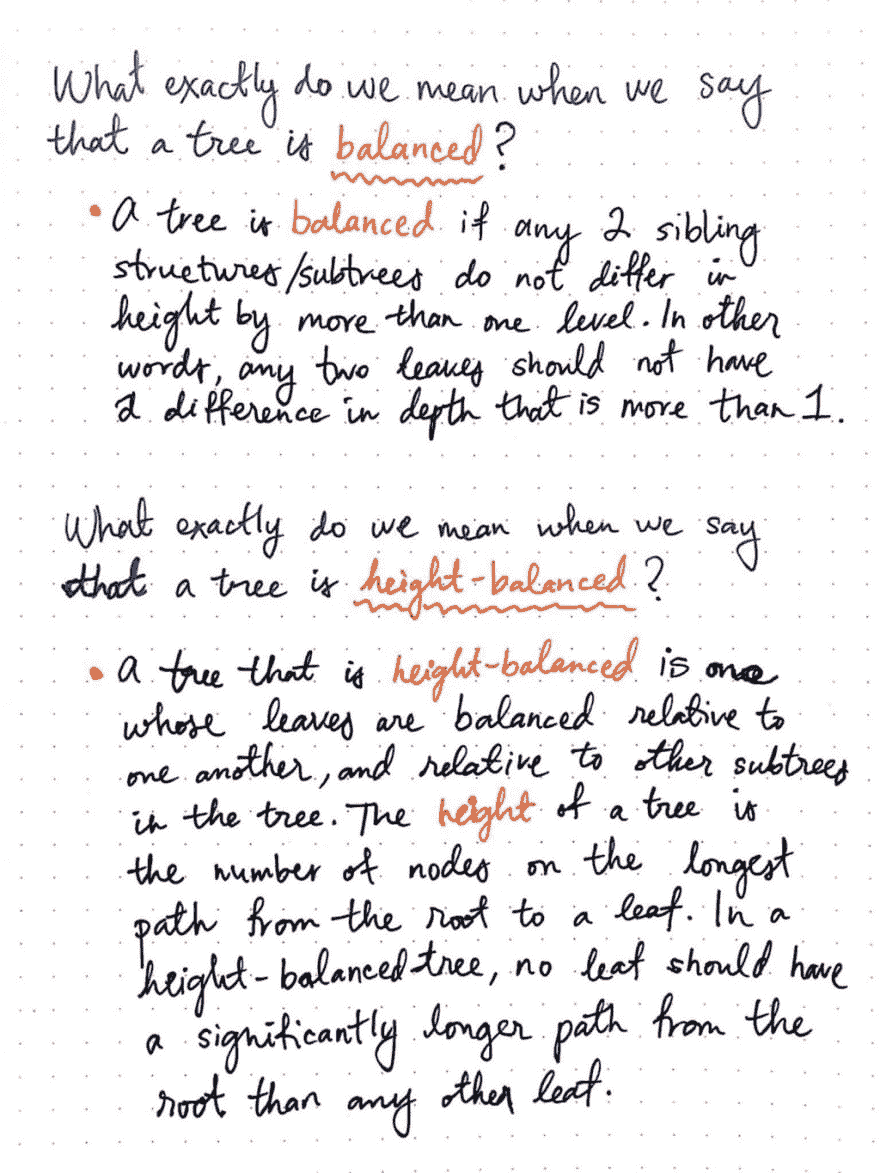 What exactly do we mean when we say
that a tree is balanced?
• A tree is balanced if any 2 sibling
structures/subtrees do not differ in
height by more than one level. In other
words, any two leaves should not have
a difference in depth that is more than 1.
What exactly do we mean when we say
that a tree is height-balanced?
• A tree that is height-balanced is one
whose leaves are balanced relative to
one another, and relative to other subtrees
in the tree. The height of a tree is
the number of nodes on the longest
path from the root to a leaf. In a
height-balanced tree, no leaf should have
a significantly longer path from the
root than any other leaf.